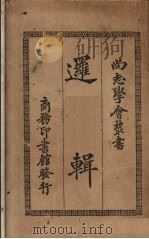 尚志學會叢書
邏輯
商務印書館發行